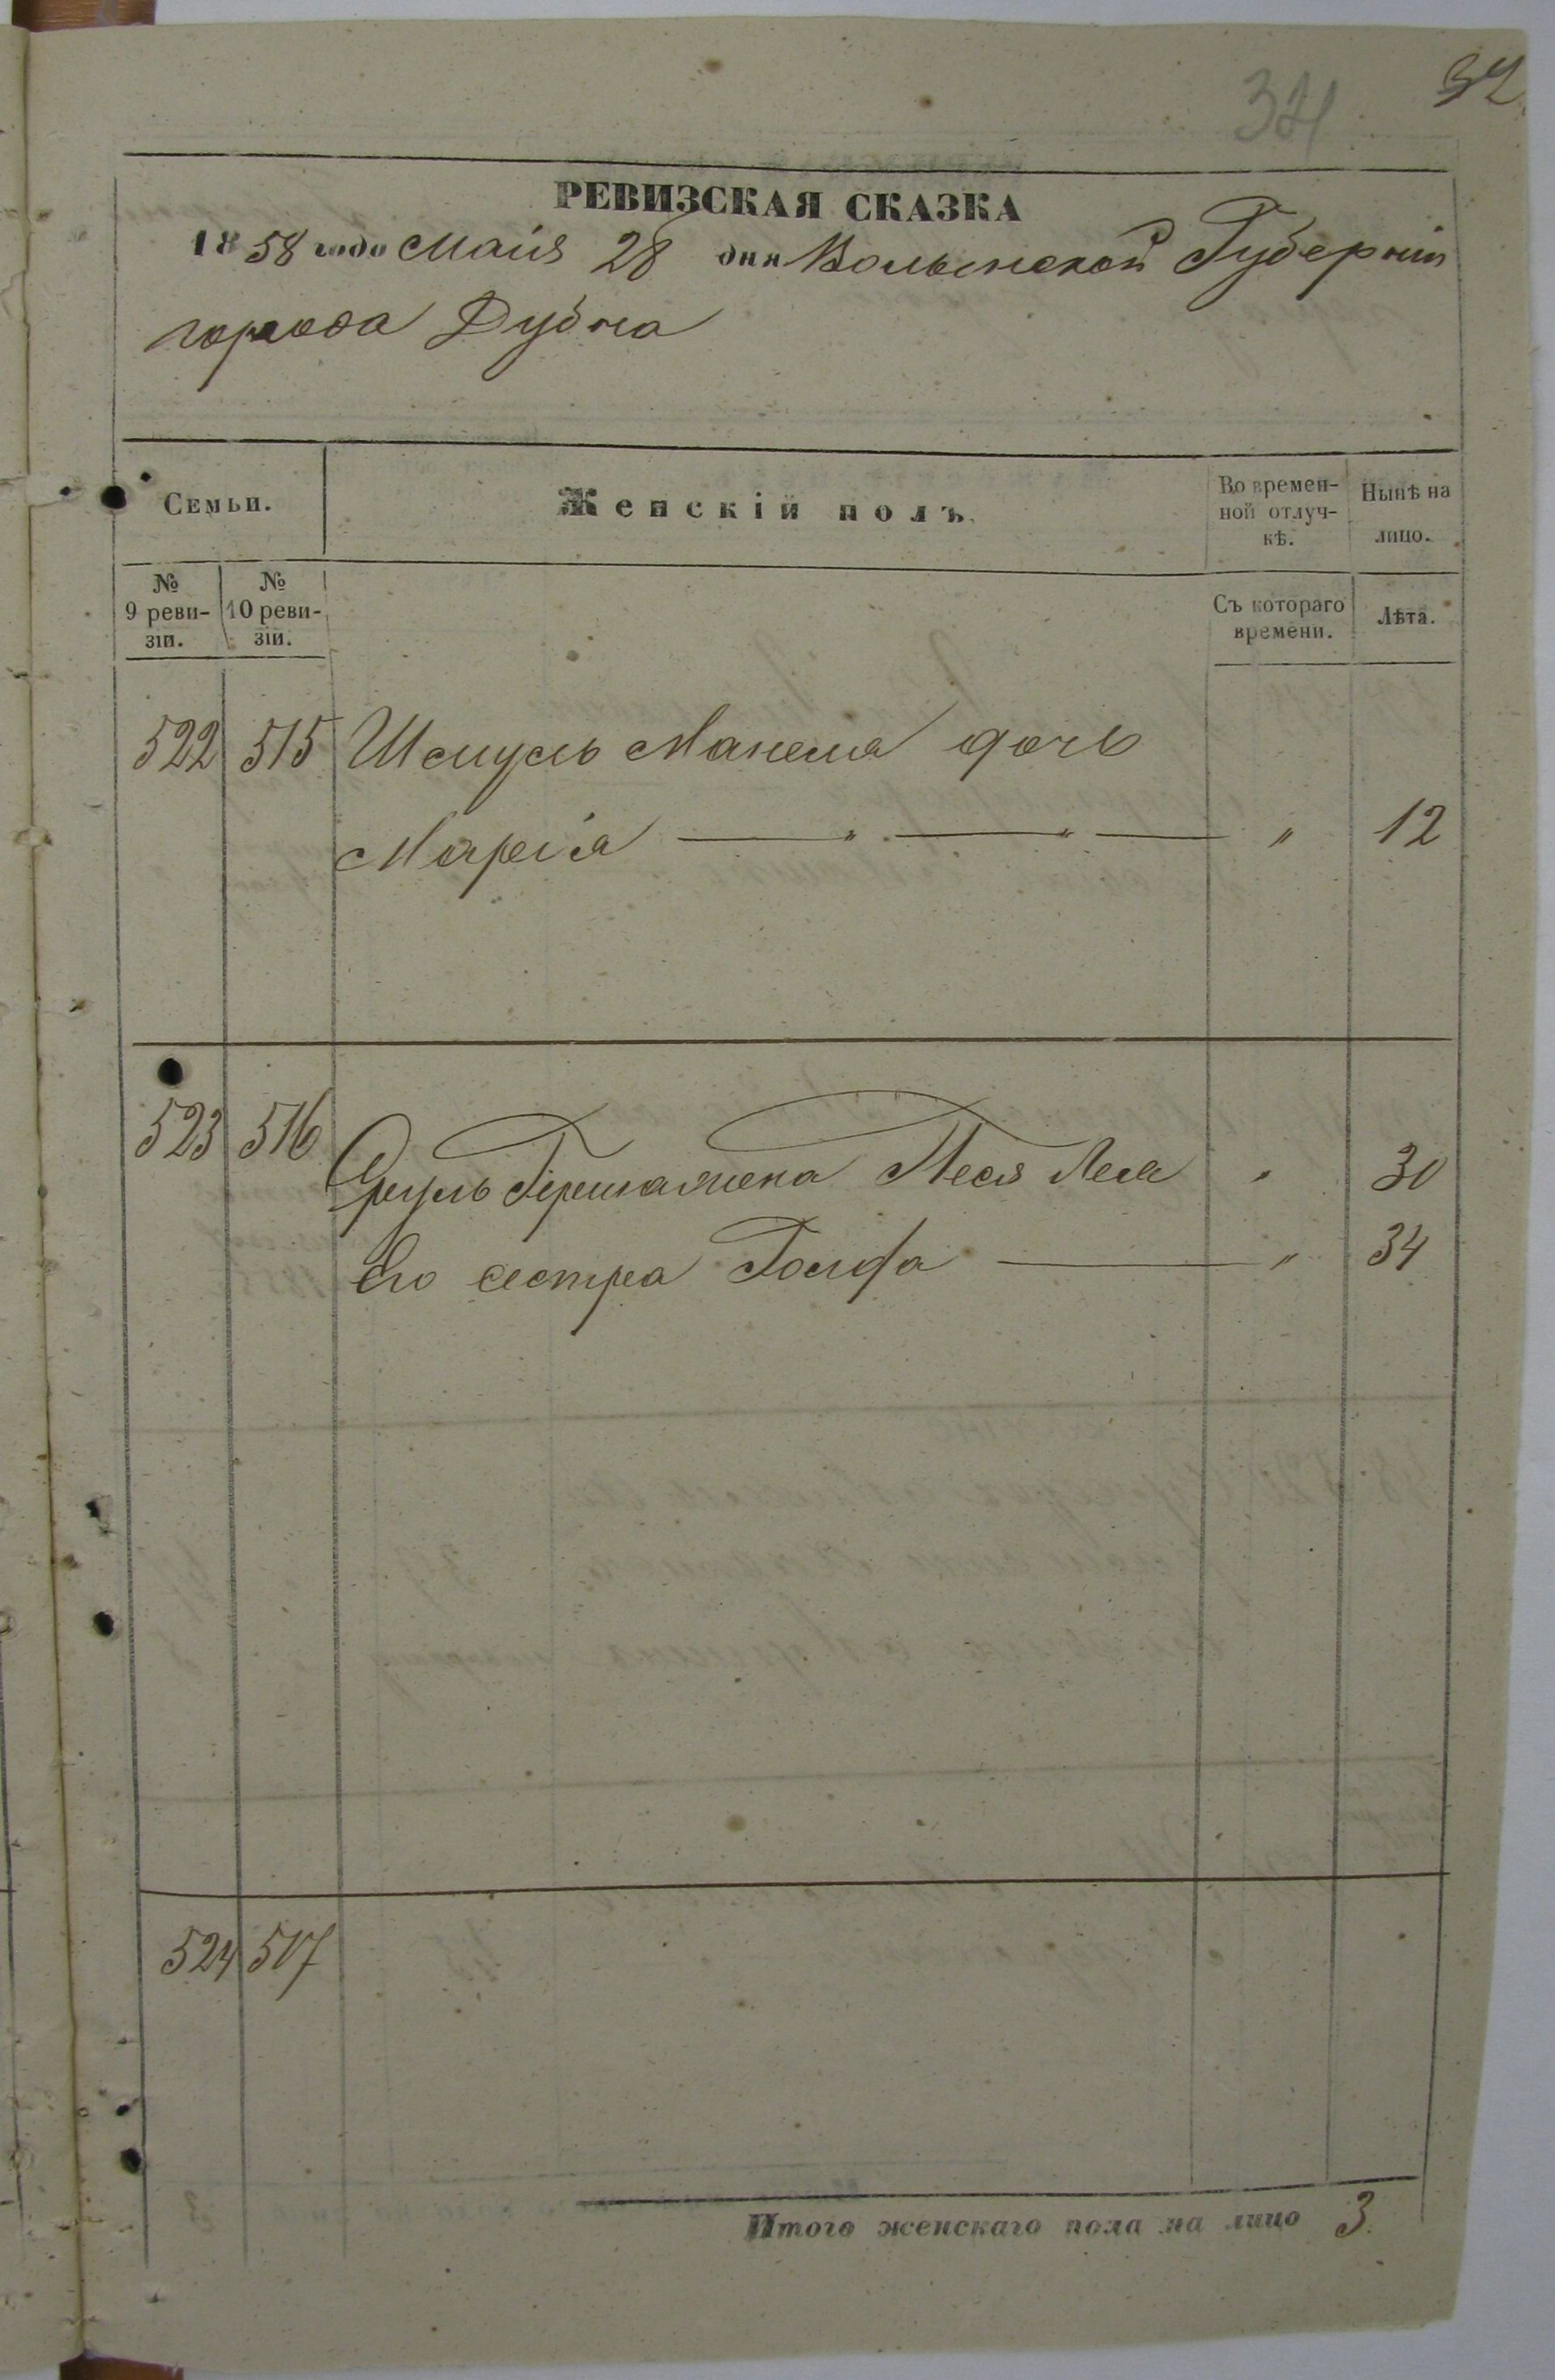 32
РЕВИЗСКАЯ СКАЗКА
1858 года Мaiя 28 дня Волынской Губернiи
города Дубна
Семьи.
Женскiй полъ.
Во времен-
ной отлуч-
кѣ.
Нынѣ на
лицо.
№
9 реви-
зiи.
№
10 реви-
зiи.
Съ котораго
времени.
Лѣта.
522 515 Шмуль Манела дочь
Марсiя — " — " — " 12
523 516 Сруль Гершка жена Песя Лея " 30
Его сестра — " 34
524 517
Итого женскаго пола на лицо 3.